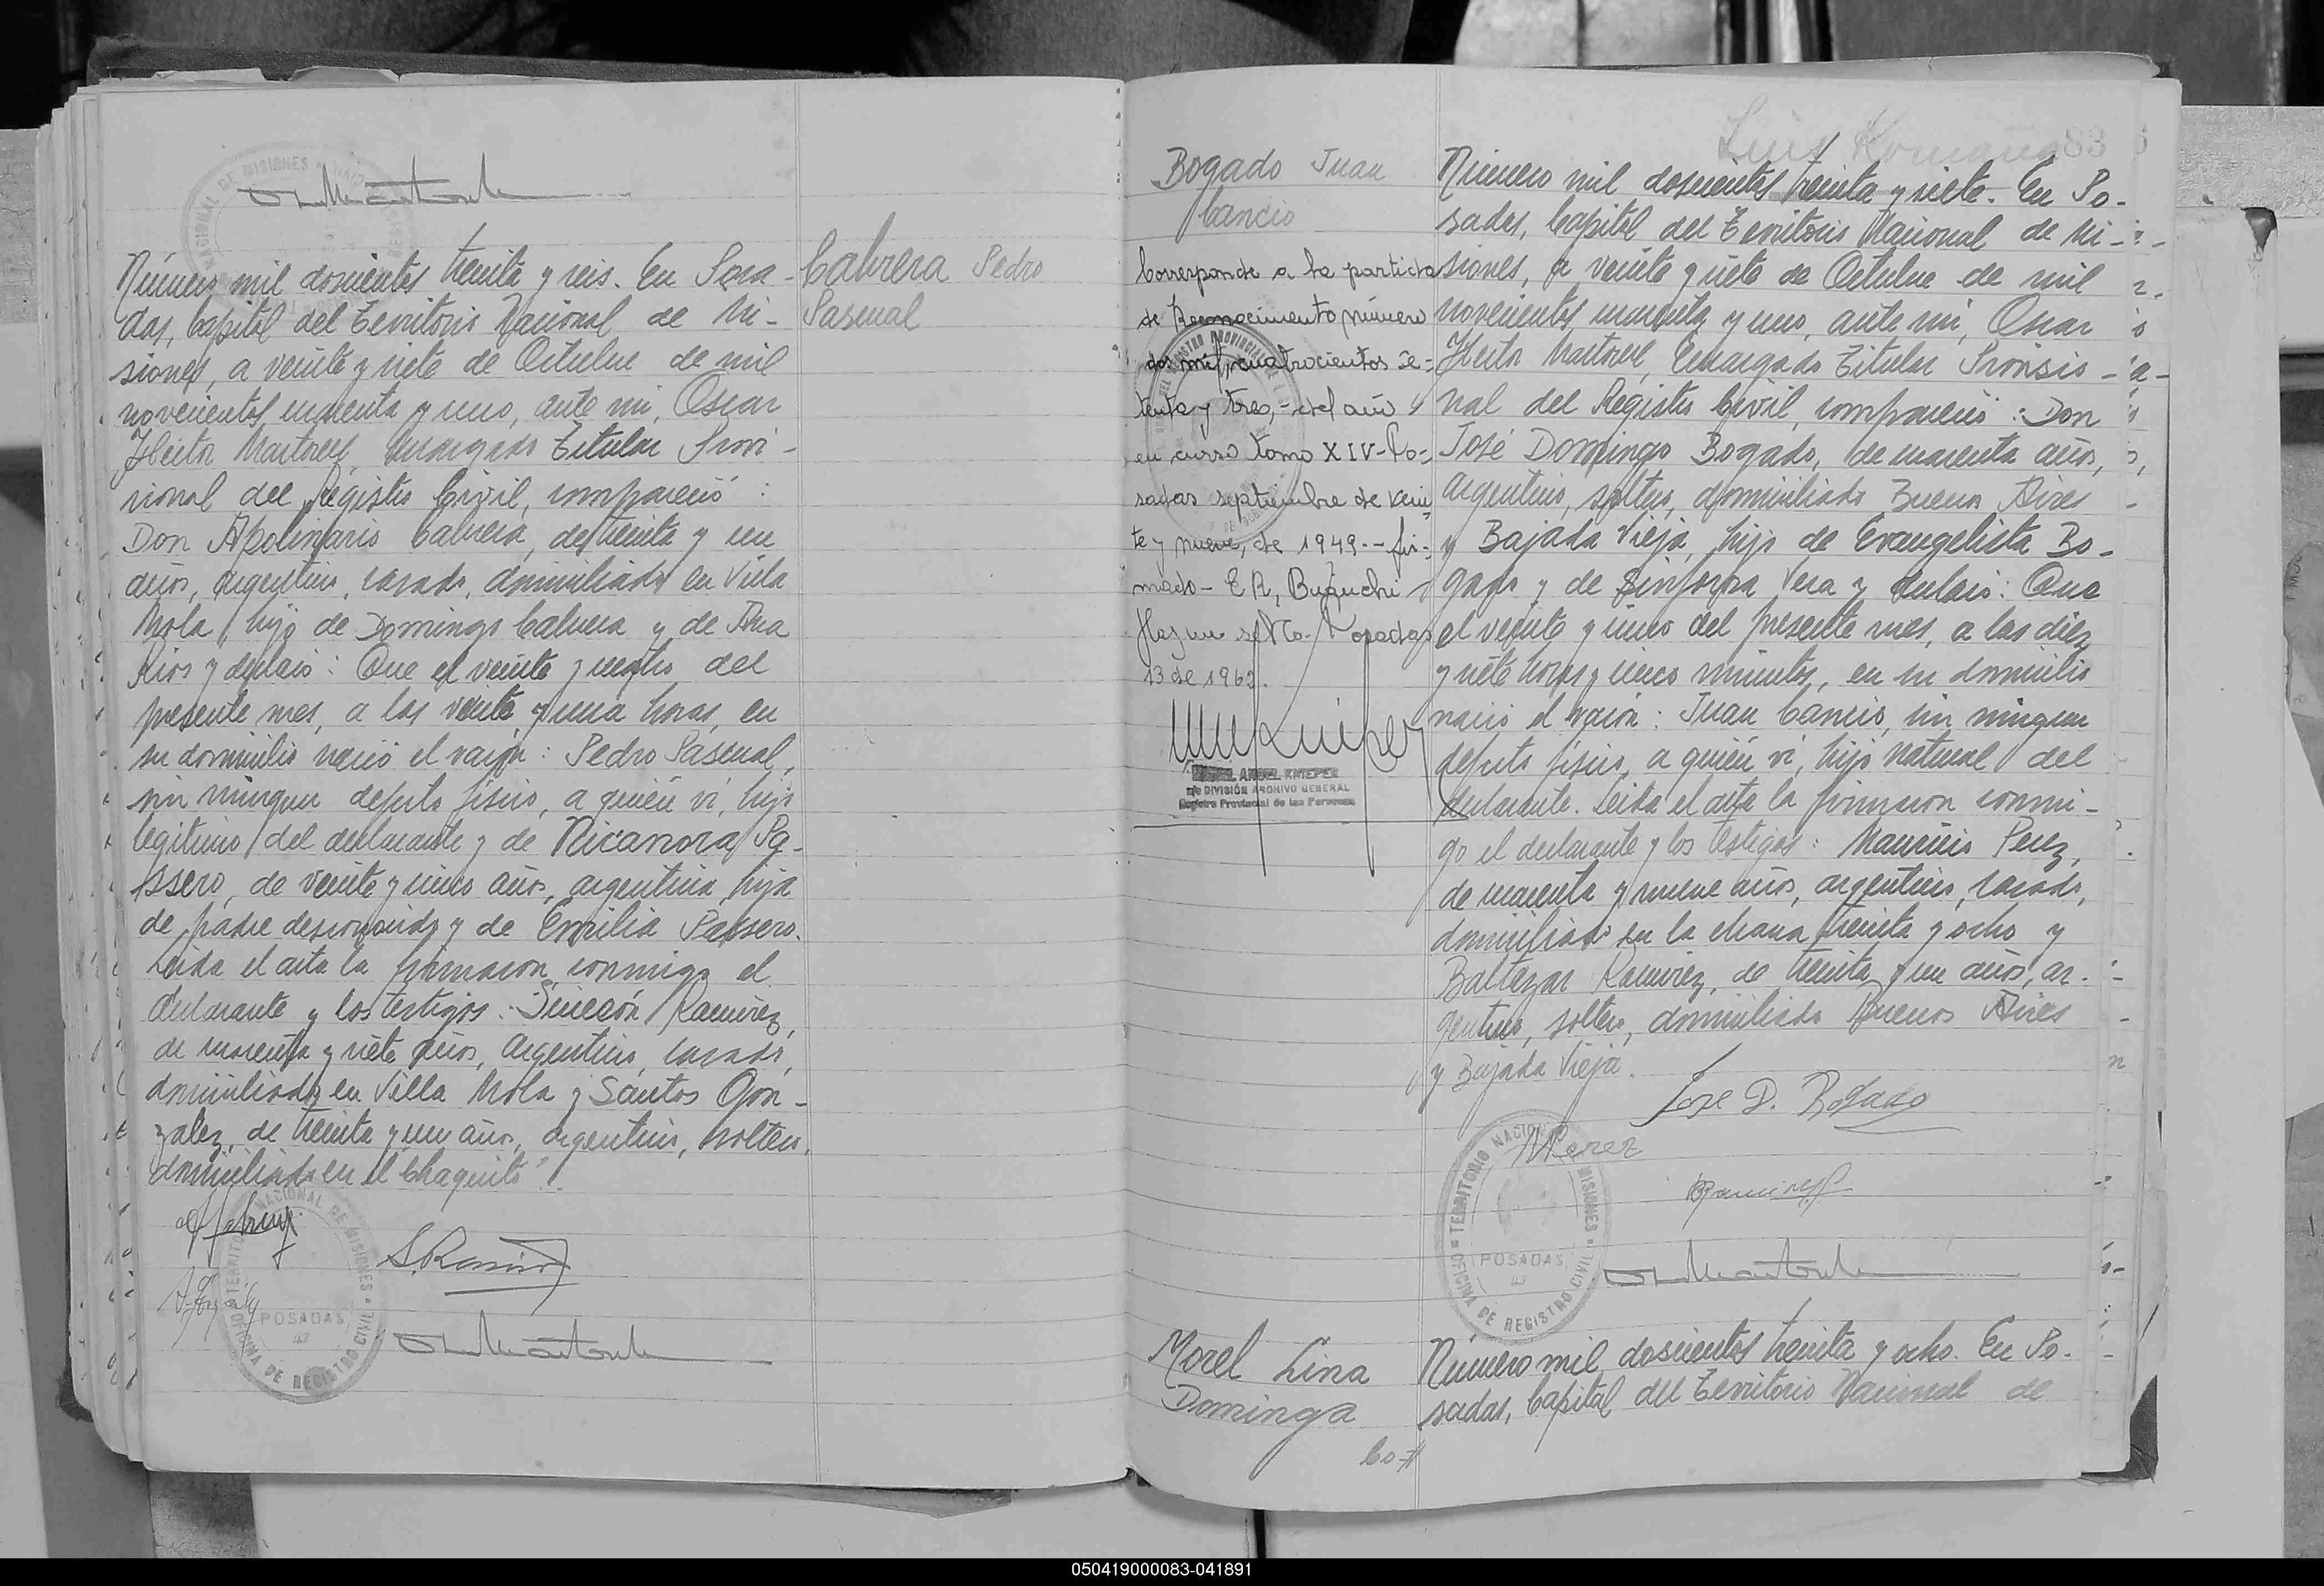 Número mil doscientos treinta y seis. En Posa-
das, Capital del Territorio Nacional de Mi-
siones, a veinte y siete de Octubre de mil
novecientos cuarenta y uno, ante mi, Oscar
Héctor Martorell, Encargado Titular Provi-
sional del Registro Civil, compareció:
Don Apolinario Cabrera, de treinta y un
años, argentino, casado, domiciliado en Villa
Mola, hijo de Domingo Cabrera y de Ana
Rios y declaró: Que el veinte y cuatro del
presente mes, a las veinte y una horas, en
su domicilio nació el varón: Pedro Pascual,
sin ningun defecto físico, a quién ví, hijo
legítimo del declarante y de Nicanora Pa-
ssero, de veinte y cinco años, argentina, hija
de padre desconocido y de Emilia Passero.
Leida el acta la firmaron conmigo el
declarante y los testigos: Simeón Ramirez,
de cuarenta y siete años, argentino, casado,
domiciliado en Villa Mola y Santos Gon-
zalez, de treinta y un años, argentino, soltero,
domiciliado en el "Chaquito".
TERRITORIO NACIONAL DE MISIONES
POSADAS
OFICINA DE REGISTRO CIVIL
S. Ramirez
Cabrera Pedro
Pascual
Bogado Juan
Cancio
Corresponde a la partida
de Reconocimiento número
dos mil cuatrocientos se-
tenta y tres, - del año
en curso tomo XIV - Po-
sadas septiembre de vein
te y nueve, de 1949. - fir-
mado - E R,
13 de 1962.
ANGEL KNIEPER
DIVISIÓN ARCHIVO GENERAL
Registro Provincial de las Personas
83
Número mil doscientos treinta y siete. En Po-
sadas, Capital del Territorio Nacional de Mi-
siones, a veinte y siete de Octubre de mil
novecientos cuarenta y uno, ante mi, Oscar
Héctor Martorell, Encargado Titular Provisio-
nal del Registro Civil, compareció: Don
José Domingo Bogado, de cuarenta años,
argentino, soltero, domiciliado Buenos Aires
y Bajada Vieja, hijo de Evangelista Bo-
gado y de Sinforosa Vera y declaró: Que
el veinte y cinco del presente mes, a las diez
y siete horas y cinco minutos, en su domicilio
nació el varón: Juan Cancio, sin ningun
defecto físico, a quién ví, hijo natural del
declarante. Leida el acta la firmaron conmi-
go el declarante y los testigos: Mauricio Perez,
de cuarenta y nueve años, argentino, casado,
domiciliado en la chacra treinta y ocho y
Baltazar Ramirez, de treinta y un años, ar-
gentino, soltero, domiciliado Buenos Aires
y Bajada Vieja.
Jose D. Bogado
MPerez
BRamirez
TERRITORIO NACIONAL DE MISIONES
POSADAS
OFICINA DE REGISTRO CIVIL
Morel Lina
Dominga
Número mil doscientos treinta y ocho. En Po-
sadas, Capital del Territorio Nacional de
050419000083-041891